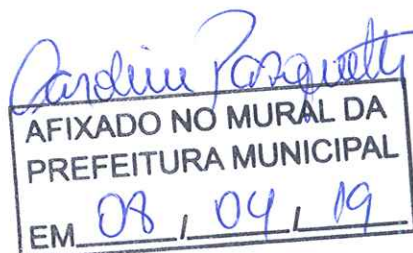 Caroline Pasquetti
AFIXADO NO MURAL DA
PREFEITURA MUNICIPAL
EM 08 / 04 / 19